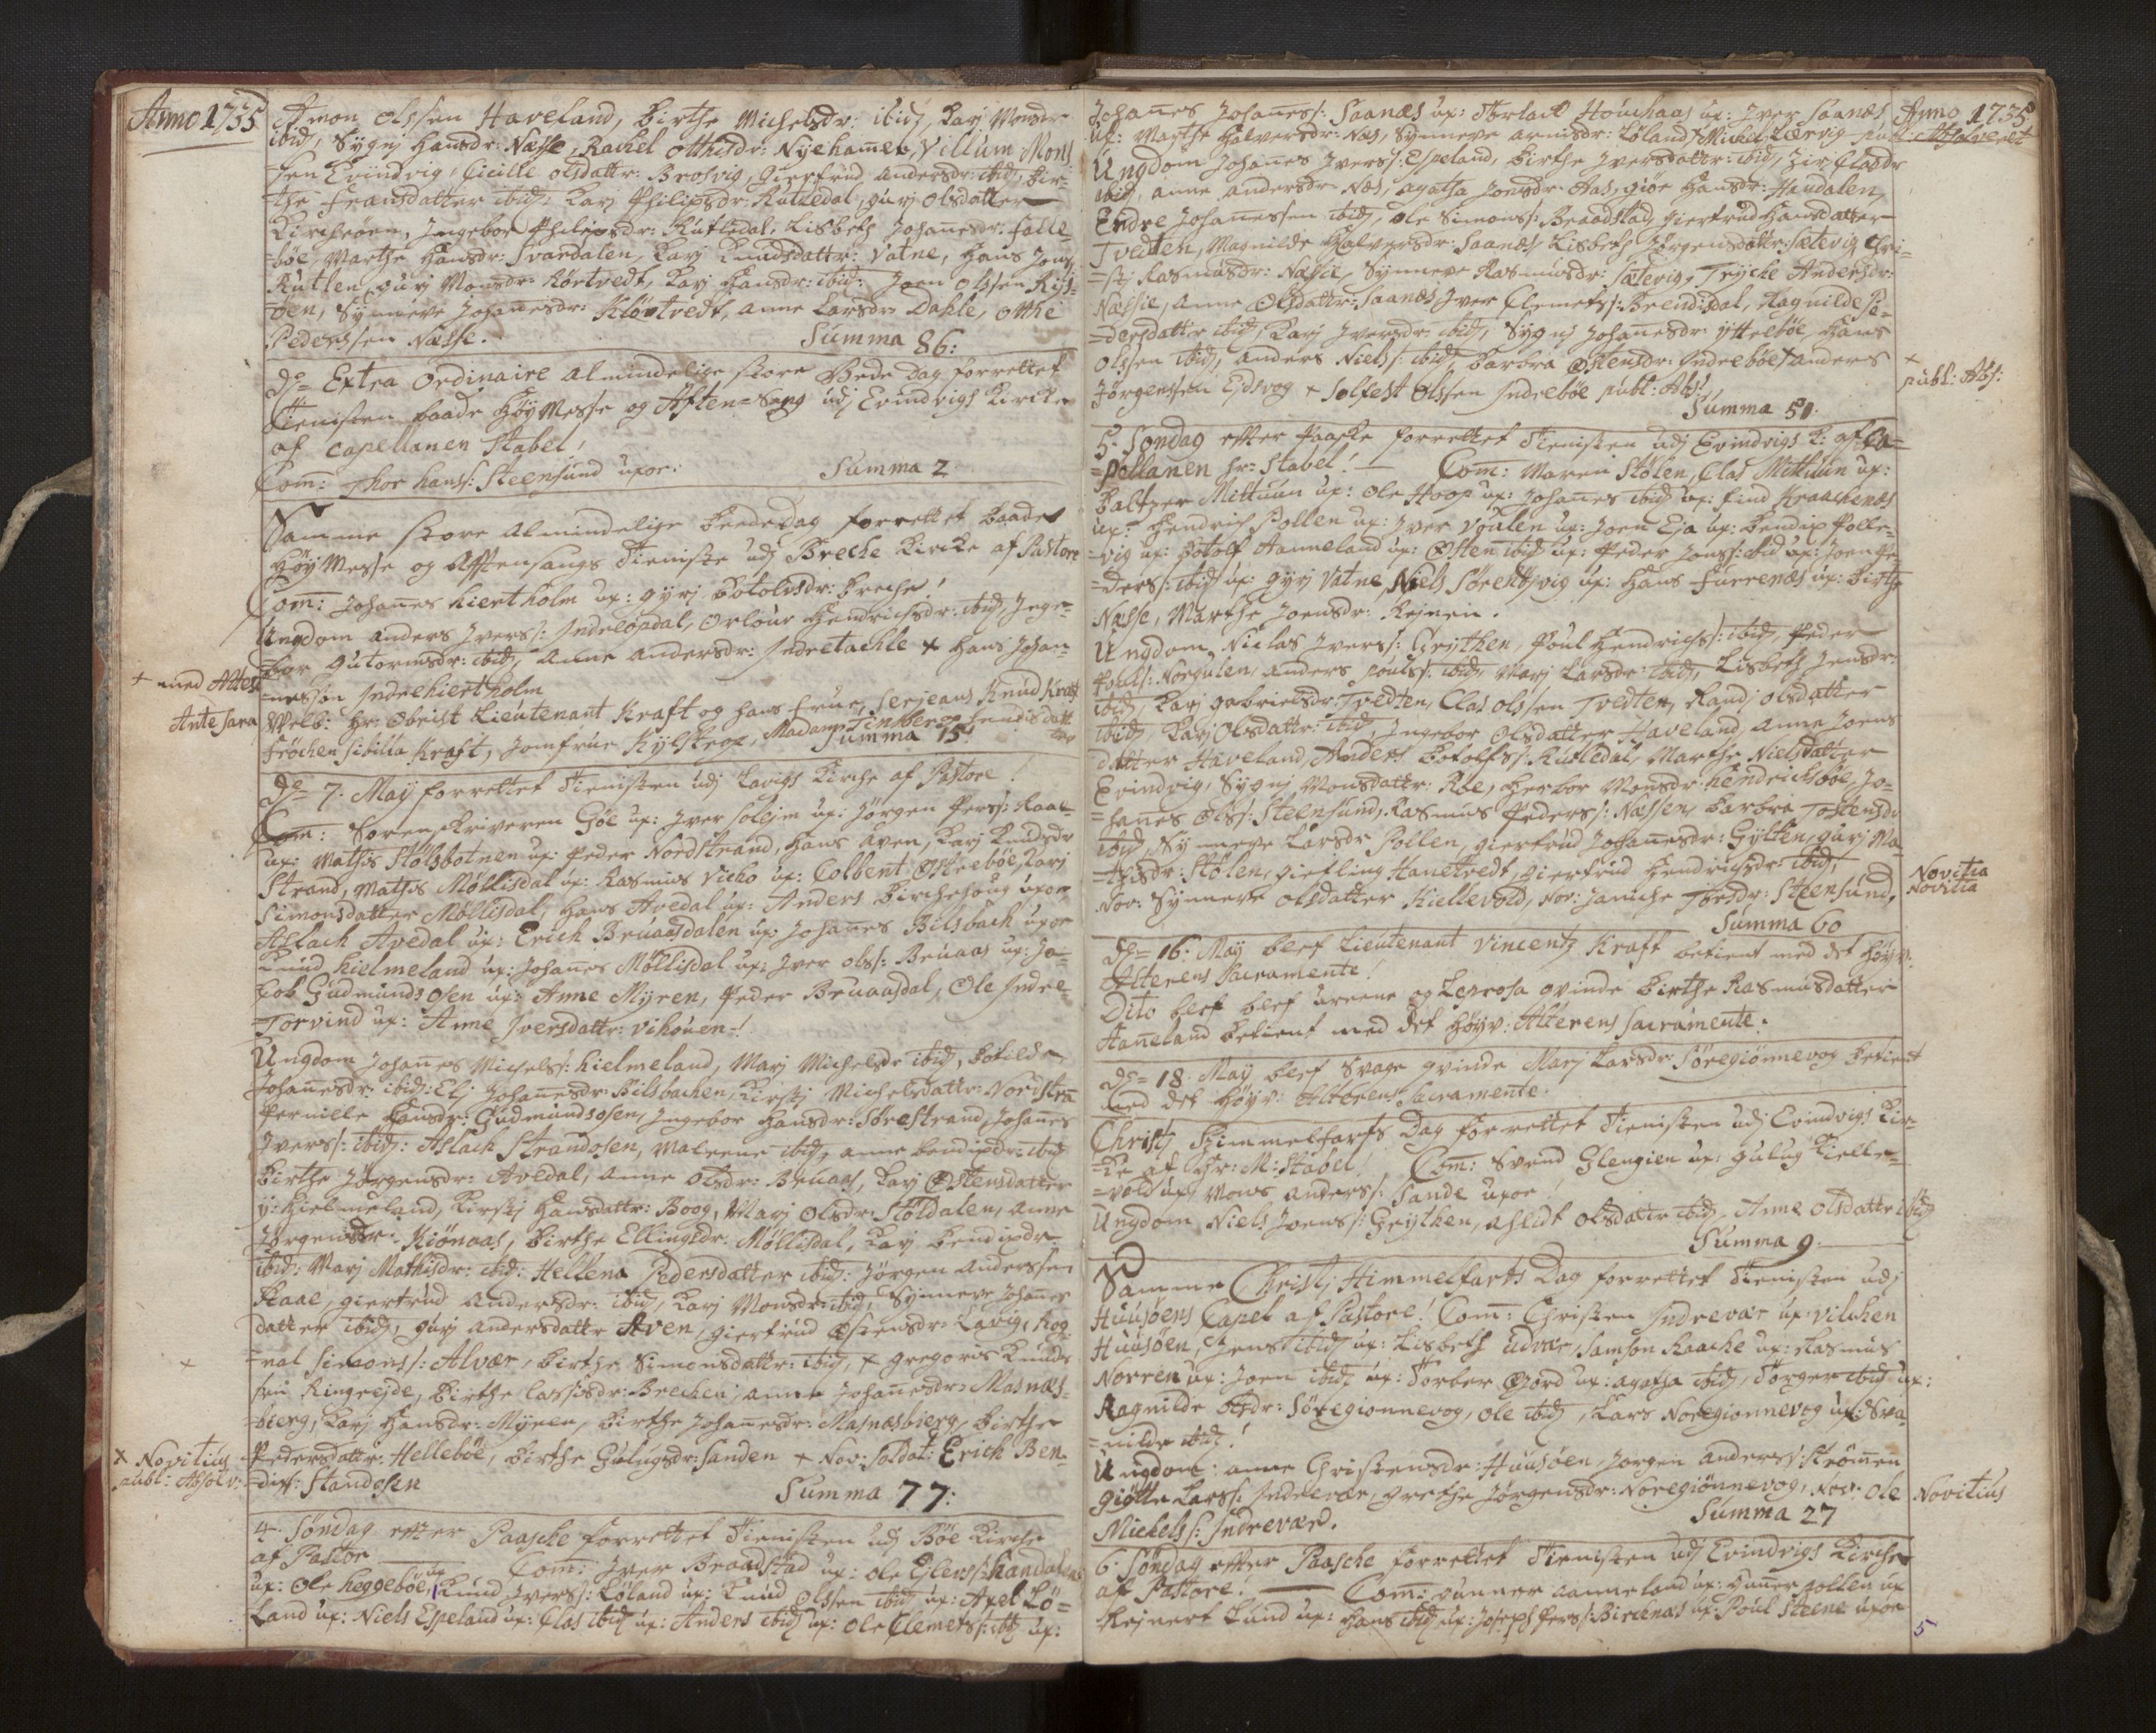 Anno 1735
Amon Olssen Haveland, Birthe Michelsdr: ibid, Karj Monsdr
ibid, Sygnj Hansdr: Næsse, Rachel Otthisdr: Nyehamer, Villum Mons
sen Evindvig, Cicille olsdattr: Brosvig, Giertrud Andersdr: ibid, Bir-
the Fransdatter ibid: Karj Philipsdr: Rutledal, gurj Olsdatter
Kircheöen, Ingebor Philipsdr: Rutledal, Lisbeth Johanesdr: Falle-
böe, Marthe Hansdr: Svardalen, Karj Knudsdattr: Vatne, Hans Jens
Rutlen, gurj Monsdr: Körtvedt, Karj Hansdr: ibid: Joen Olssen Risl-
öen, Synneve Johanesdr: Klövtvedt, Anne Larsdr Dahle, Otthe
Pederssen Næsse. Summa 86:
De= Extra Ordinaire almindelige store Bede Dag forrettet
Tienisten baade Höy Messe og Aften-Sang udj Evindvigs Kircke
af Capellanen Stabel!
Com: Thor hanss: Steensund uxor: Summa 2
Samme store Almindelige Beededag forrettet baade
Höy Messe og Afftensangs Tieniste udj Breche Kircke af Pastore
Com: Johanes Kiertholm ux: gyrj Botolvsdr: Breche!
Ungdom Anders Iverss: Indelöpdal, Orlour Hendrichsdr: ibid, Inge-
bor Gutormsdr: ibid, Anne Andersdr: Indretachle + Hans Johan-
+ med Alter nessøn Indrehiertholm
Ante sara Velb: Hr: Obrist Lieutenant Kraft og hans Frue, Serjeant Knud Kraft
Fröchen Sibilla Kraft, Jomfrue Kylstrop, Madam Finberop hendis datt
Summa 15!
De= 7. Maÿ forrettet Tienisten udj Lavigs Kirche af Pastore!
Com: Sorenskriveren Göe ux: Iver Solejm ux: Jörgen Perss: Raae-
ux: Mathis Stölsbotnen ux: Peder Nordstrand, Hans Aven, Karj Knudsdr
Strand, Mathis Möllisdal ux: Rasmus Vicho ux: Colbent Ostreböe, Karj
Simonsdatter Möllisdal, Hans Avedal ux: Anders Kirchehoug uxor
Aslach Avedal ux: Erich Bruaasdalen ux: Johanes Bilsbach uxor
Knud Kielmeland ux: Johanes Möllisdal ux: Iver olss: Bruaas ux: Ja-
cob Gudmundsosen ux: Anne Myren, Peder Bruaasdal, Ole Indre-
Torvind ux: Anne Iversdattr: Vihouen-!
Ungdom Johanes Michelss: Kielmeland, Marj Michelsdr ibid, Botilde
Johanesdr: ibid: Elj Johanesdr: Bilsbachen, Kirstj Michelsdattr: Nordstra
Pernille Hansdr: Gudmundsosen, Ingebor Hansdr: Sörestrand, Johanes
Iverss: ibid: Aslach Strandosen, Maleene ibid, anne bendixdr: ibid
Birthe Jörgensdr: Avedal, Anne Olsdr: Bruaas, Karj Ostensdatter
y: Kielmeland, Kirstj Hansdattr: Boog, Marj Olsdr: Stöldalen, Anne
Jörgensdr: Kiönaas, Birthe Ellingsdr: Möllisdal, Karj Bendixdr
ibid: Marj Mathisdr: ibid: Hellena Pedersdatter ibid: Jörgen Anderssen
Raae, giertrud Andersdr: ibid, Karj Monsdr: ibid, Synneve Johanes
datter ibid, gurj Andersdattr Aven, Giertrud Ostensdr: Lavig, Rog-
+ nal Simonss: Alvær, Birthe Simonsdattr: ibid, + gregoris Knuds
sen Ringrejde, Birthe Lassisdr: Brechen, anne Johanesdr: Masnæs-
bierg, Karj Hansdr: Myren, Birthe Johanesdr: Masnæsbierg, Birthe
+ Novitius Pedersdattr: Helleböe, Birthe Gulugsdr: Sanden + Nov: Soldat: Erich Ben-
publ: Absolv: dixs: Standosen Summa 77:
4. Söndag etter Paasche forrettet Tienisten udj Böe Kirche
af Pastor Com: Iver Braadstad ux: Ole Elenss: Handalen
ux: Ole Heggeböe ux Knud Iverss: Löland ux: Knud Olssen ibid ux: Axel Lö-
land ux: Niels Espeland ux: Clas ibid ux: Anders ibid ux: Ole Clemetss: ibid ux:
Anno 1735
Johanes Johaness: Saanæs ux: Torlach Houchaas ux: Iver Saanæs
ux: Marthe Halversdr: Næs, Synneve arnisdr: Löland, Michel Lærvig publ: Absolveret
Ungdom Johanes Iverss: Espeland, Birthe Iversdattr: ibid, Zirj Clasdr
ibid, anne andersdr: Næs, agatha Jonsdr: Aas, giöe Hansdr: Haudalen,
Endre Johanessen ibid, Ole Simonss: Braadstad, Giertrud Hansdatter
Tvedten, Magnilde Halversdr: Saanæs, Lisbeth Jörgensdattr: Sætevig, Chri-
stj Rasmusdr: Næssie, Synneve Rasmusdr: Sætevig, Trycke Andersdr:
Næssie, Anne Olsdattr: Saanæs, Iver Clemetss: Breidisdal, Ragnilde Pe-
dersdattr ibid, Karj Iversdr: ibid, Sygnj Johanesdr: ytteböe, Hans
Olssen ibid, Anders Nielss: ibid, Barbra Ostensdr: Indreböe, + anders
+ publ: Abs: Jörgensen Eidsvog + Solfest Olssen Indreböe publ: Abs:
Summa 51.
5. Søndag etter Paaske forrettet Tienisten udj Evindvigs K: af Ca-
pellanen hr= Stabel! — Com: Maren Stölen, Clas Mittuun ux:
Baltzer Mittuun ux: Ole Hoop ux: Johanes ibid ux: Find Kraachenæs
ux: Hendrich Pollen ux: Iver Vöalen ux: Joen Eja ux: Bendix Polle-
vig ux: Botolf Aanneland ux: Osten ibid ux: Peder Jonss: ibid ux: Joen Pe-
derss: ibid ux: gyrj Vatne, Niels Sörentzvig ux: Hans Furrenæs ux: Birthe
Næsse, Marthe Joensdr: Kejnein.
Ungdom, Niclas Iverss: Grythen, Poul Hendrichss: ibid, Peder
Pouls: Norgulen, anders pouls: ibid, Marj Larsdr: ibid, Lisbeth Jensdr:
ibid, Karj gabrielsdr: Tvedten, Clas Olssen Tvedten, Randj olsdatter
ibid, Karj Olsdattr: ibid, Ingebor Olsdatter Haveland, Anne Joens
datter Haveland, Anders Botolfss: Rutledal, Marthe Nielsdatter
Evindvig, Sygnj Monsdattr: Röe, Herbor Monsdr: Hendrichsböe, Jo-
hanes Olss: Steensund, Rasmus Pederss: Næssen, Barbra Tostensdr
ibid, Synneve Larsdr Pollen, giertrud Johanesdr: Gylten, gurj Ma-
thisdr: Stölen, giefling Hanetvedt, Giertrud Hendrichsdr: ibid, Novitia
Nov: Synneve Olsdatter Kiellevold, Nov: Janiche Torsdr: Steensund, Novitia
Summa 60
De= 16. Maÿ blef Lieutenant Vincentz Kraft betient med det Höyv:
Alterens Sacramente!
Dito blef blef areene og Leprosa qvinde Birthe Rasmusdatter
Haneland betient med det Höyv: Alterens Sacramente.
De= 18. Maÿ blef svage qvinde Marj Larsdr: Söregiönnevog betient
med det Höyv: Alterens Sacramente.
Christj Himmelfarts Dag forrettet Tienisten udj Evindvigs Kir-
ke af Hr: M: Stabel! Com: Svend Glengien ux: Gulug Kielle-
vold ux: Mons anderss: Sande uxor!
Ungdom Niels Joenss: Grythen, aslidt Olsdattr ibid, Anne Olsdattr ibid
Summa 9.
Samme Christj Himmelfarts Dag forrettet Tienisten udj
Huusöens Capel af Pastore! Com: Christen Indrevær ux: Vilchen
Huusöen, Jens ibid ux: Lisbeth Udvær, Samson Raache ux: Rasmus
Norren ux: Joen ibid ux: Torber Giord ux: agatha ibid, Torger ibid ux:
Ragnilde Olsdr: Söregionnevog, Ole ibid, Lars Noregionnevog ux: Sva-
nilde ibid!
Ungdom: anne Christensdr: Huusöen, Jorgen Anderss: Strömen
giötte Larss: Indrevær, grethe Jörgensdr: Noregiönnevog, Nov: Ole Novitius
Michelss: Indreværd. Summa 27
6. Söndag etter Paasche forrettet Tienisten udj Evindvigs Kirche
af Pastore! — Com: Gunner Aanneland ux: Hanner Pollen ux
Rejnert Lund ux: Hans ibid ux: Joseph Perss: Birchenæs ux: Poul Steene uxor
5